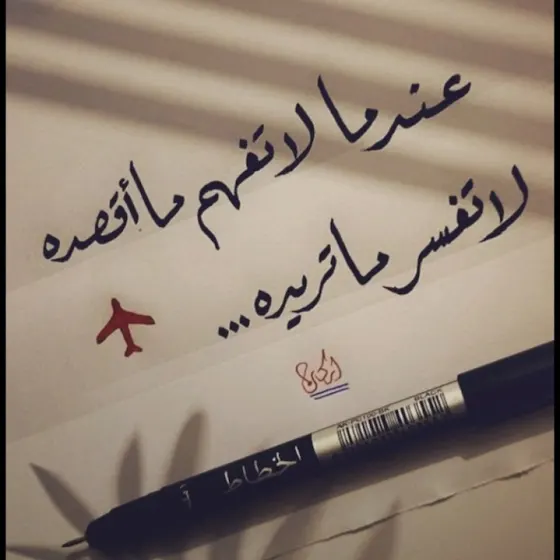 عندما لا تفهم ما أقصده
لا تفسر ما تريده...
الخطاط أ
BLACK